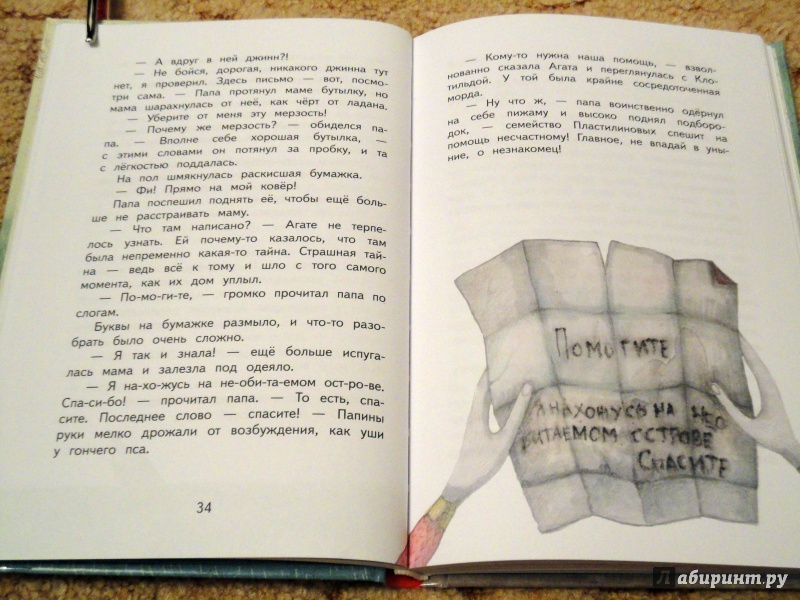 — А вдруг в ней джинн?!
— Не бойся, дорогая, никакого джинна тут
нет, я проверил. Здесь письмо — вот, посмо-
три сама. — Папа протянул маме бутылку, но
мама шарахнулась от неё, как чёрт от ладана.
— Уберите от меня эту мерзость!
— Почему же мерзость? — обиделся па-
па. — Вполне себе хорошая бутылка, —
с этими словами он потянул за пробку, и та
с лёгкостью поддалась.
На пол шмякнулась раскисшая бумажка.
— Фи! Прямо на мой ковёр!
Папа поспешил поднять её, чтобы ещё боль-
ше не расстраивать маму.
— Что там написано? — Агате не терпе-
лось узнать. Ей почему-то казалось, что там
была непременно какая-то тайна. Страшная тай-
на — ведь всё к тому и шло с того самого
момента, как их дом уплыл.
— По-мо-ги-те, — громко прочитал папа по
слогам.
Буквы на бумажке размыло, и что-то разо-
брать было очень сложно.
— Я так и знала! — ещё больше испуга-
лась мама и залезла под одеяло.
— Я на-хо-жусь на не-оби-та-емом ост-ро-ве.
Спа-си-бо! — прочитал папа. — То есть, спа-
сите. Последнее слово — спасите! — Папины
руки мелко дрожали от возбуждения, как уши
у гончего пса.
34
— Кому-то нужна наша помощь, — взвол-
нованно сказала Агата и переглянулась с Кло-
тильдой. У той была крайне сосредоточенная
морда.
— Ну что ж, — папа воинственно одёрнул
на себе пижаму и высоко поднял подборо-
док, — семейство Пластилиновых спешит на
помощь несчастному! Главное, не впадай в уны-
ние, о незнакомец!
Помогите
Я нахожусь на нео
битаемом острове
Спасите
Лабиринт.ру